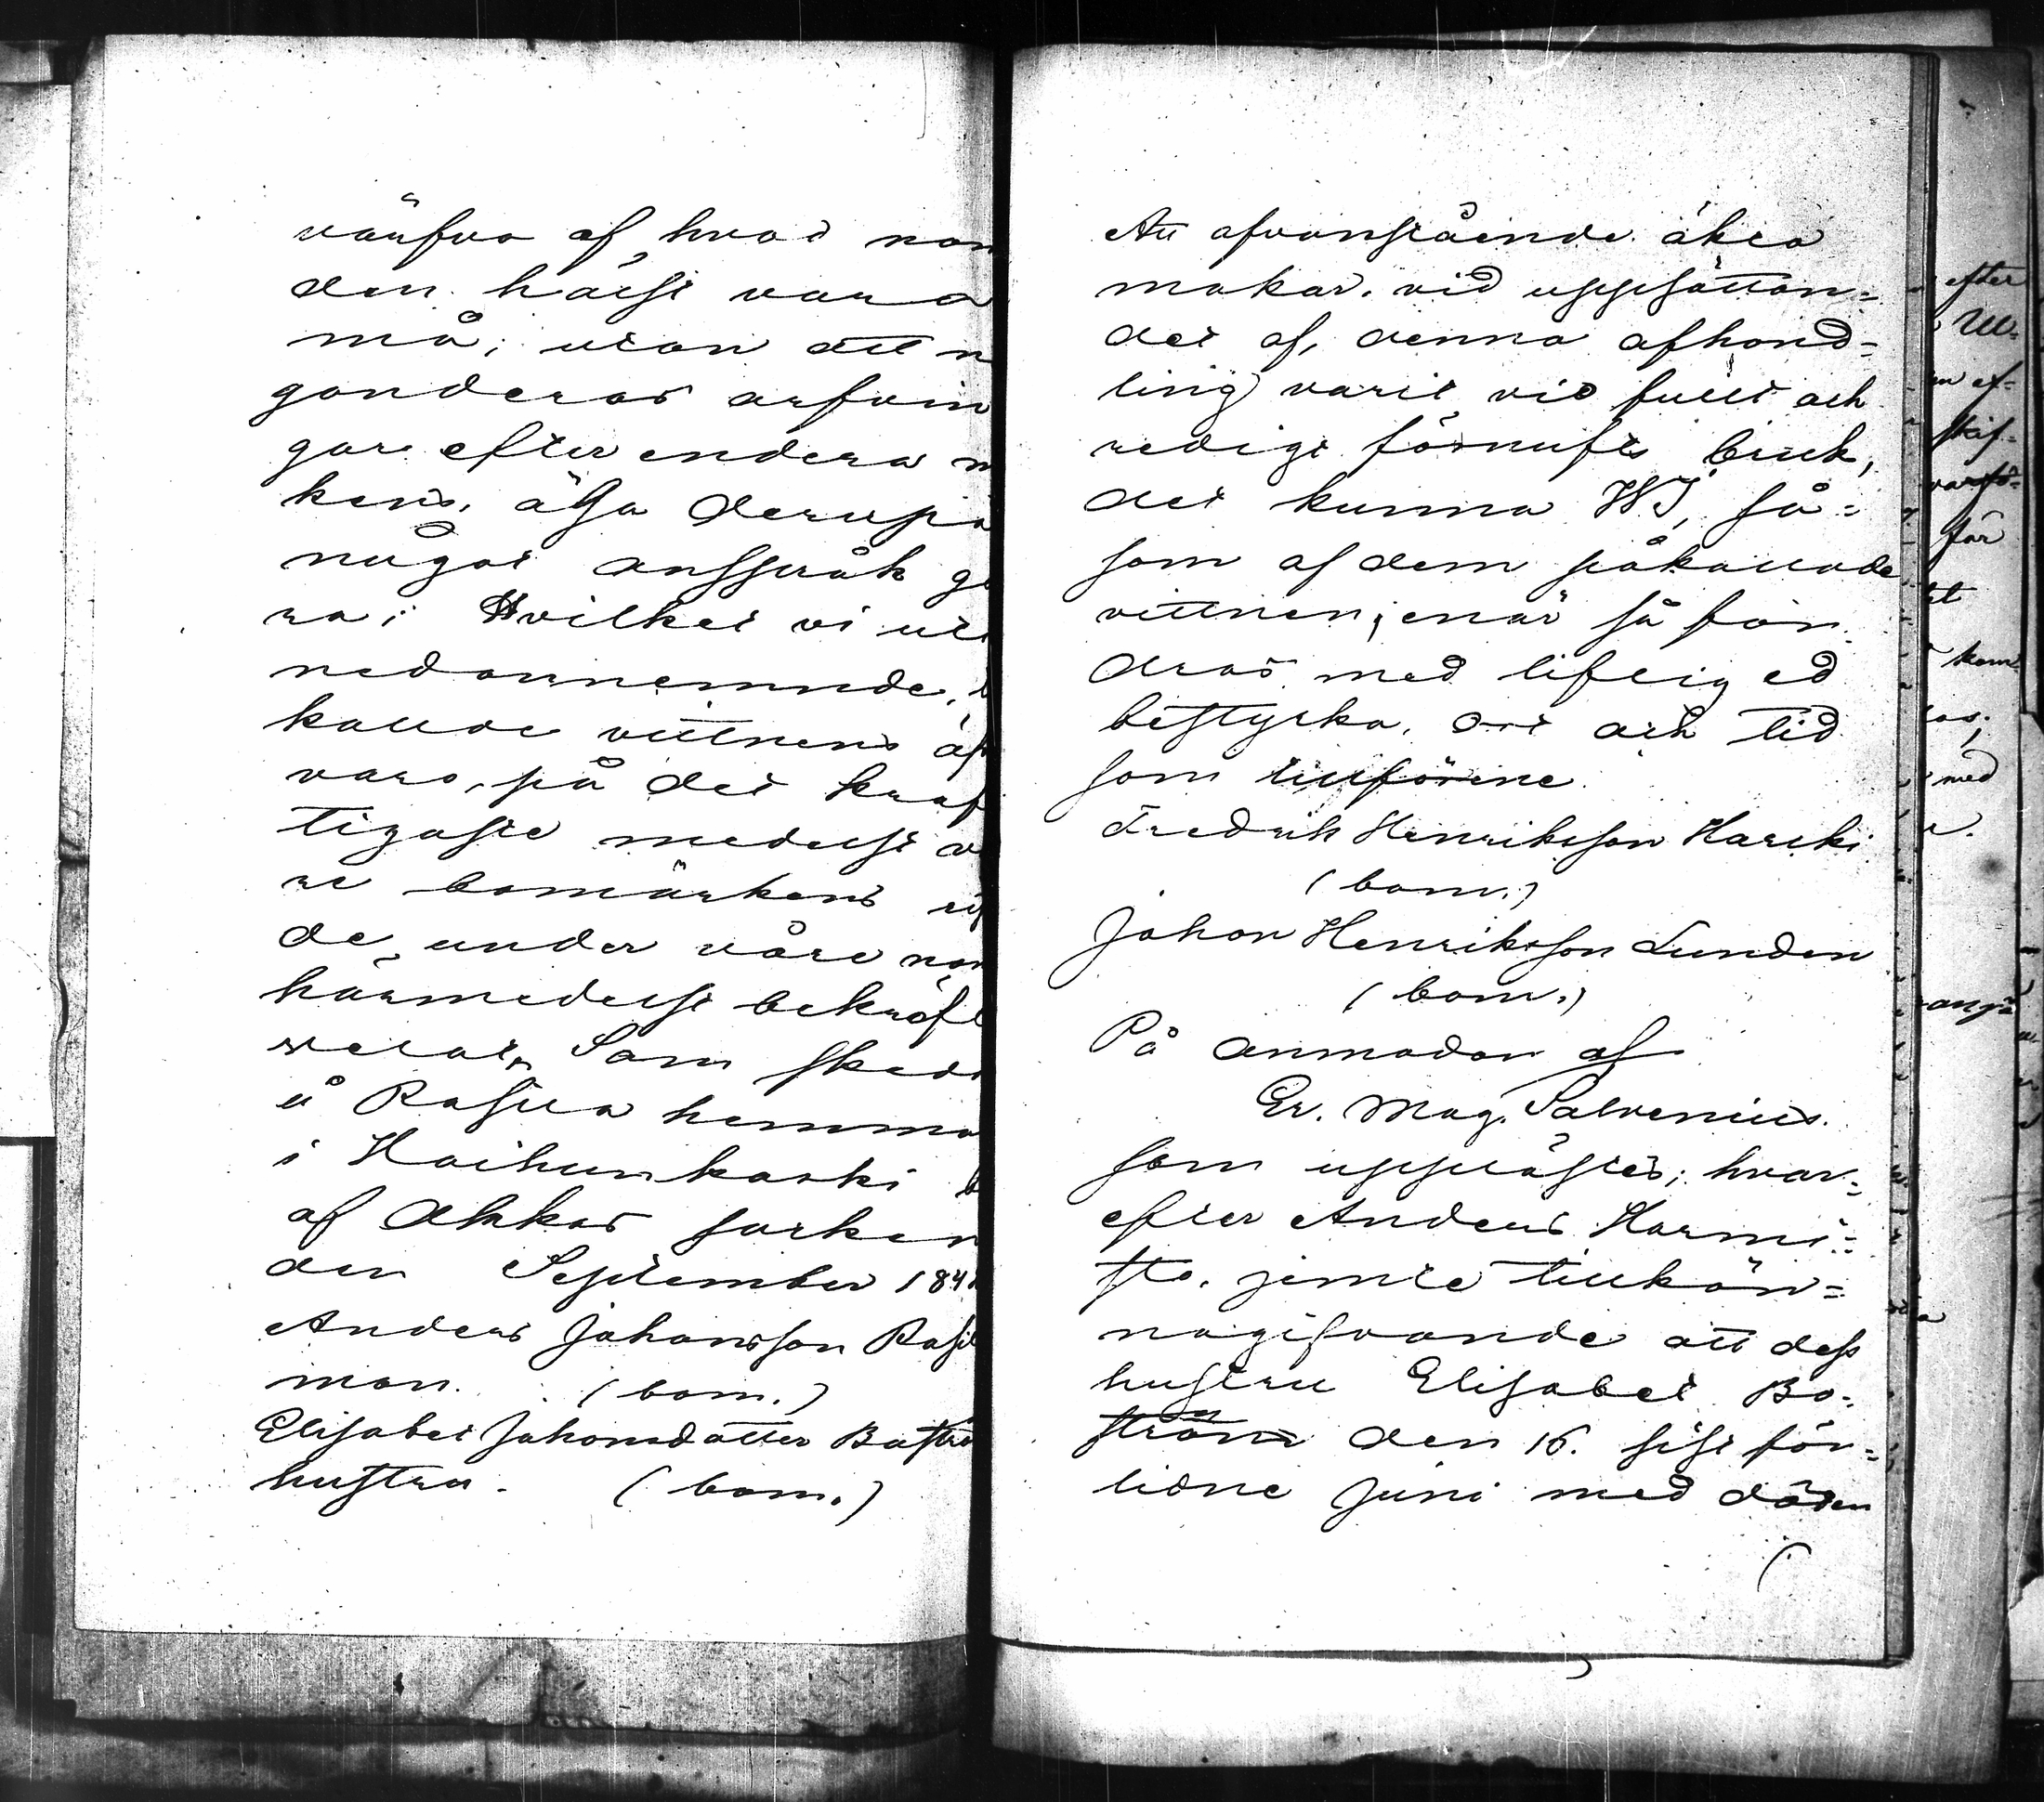 värfva af hvad nam
den hälst vara
må; utan att n
gonderas arfvin
gar efter endera m
kens, äga derupå
något anspråk gö
ra; Hvilket vi uti
nedannemnde,
kallde vittnens öf
varo, på det kraf
tigaste medelst v
re bomärkens
de under våre nam
härmedelst bekräft
Som skedde
å Rasila hemma
i Haihunkoski b
af Akkas socken
den September 184
Anders Johansson Rasil
man. (bom.)
Elisabet Johansdotter Boströ
hustru. (bom.)
Att ofvanstående äkta
makar, vid uppsättan=
det af denna afhand=
ling varit vid fullt och
redigt förnufts bruk,
det kunna WJ, så=
som af dem påkallade
vittnen, enär så for=
dras med liflig ed
bestyrka. Ort och tid
som tillförene.
Fredrik Henriksson Harcki
(bom.)
Johan Henriksson Lunden
(bom.)
På anmodan af
Er. Mag. Salvenius.
som upplästes; hvar=
efter Anders Harmi=
sto. jemte tillkän=
nagifvande att dess
hustru Elisabet Bo=
ström den 16. sist för=
lidne Juni med döden
efter
Ull=
en ef=
skif=
varfö=
för
kom=
med